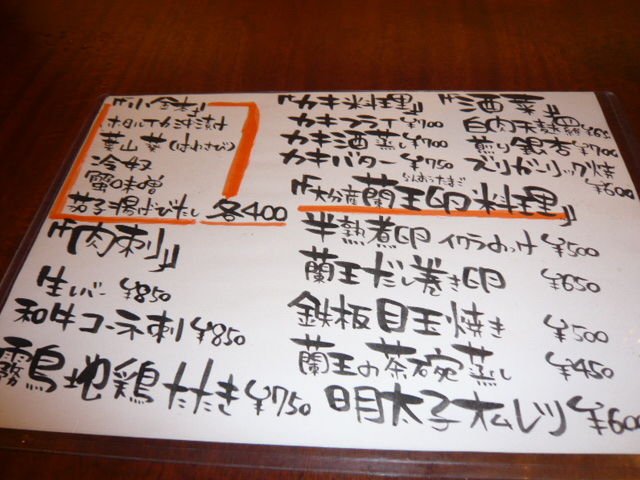 『小鉢』
ホタルイカ沖漬け
葉山葵(はわさび)
冷奴
雷味噌
茄子揚げびたし 各400
『肉刺』
生レバー ¥850
和牛コーネ刺 ¥850
霧島地鶏たたき ¥750
『カキ料理』
カキフライ ¥700
カキ酒蒸し ¥700
カキバター ¥750
『酒菜』
白肉天麩羅
煎り銀杏 ¥700
ズリガーリック焼 ¥600
らんおうたまご
『大分産蘭王卵料理』
半熟煮卵 イクラのっけ ¥500
蘭王だし巻き卵 ¥650
鉄板目玉焼き ¥500
蘭王の茶碗蒸し ¥450
明太子オムレツ ¥600